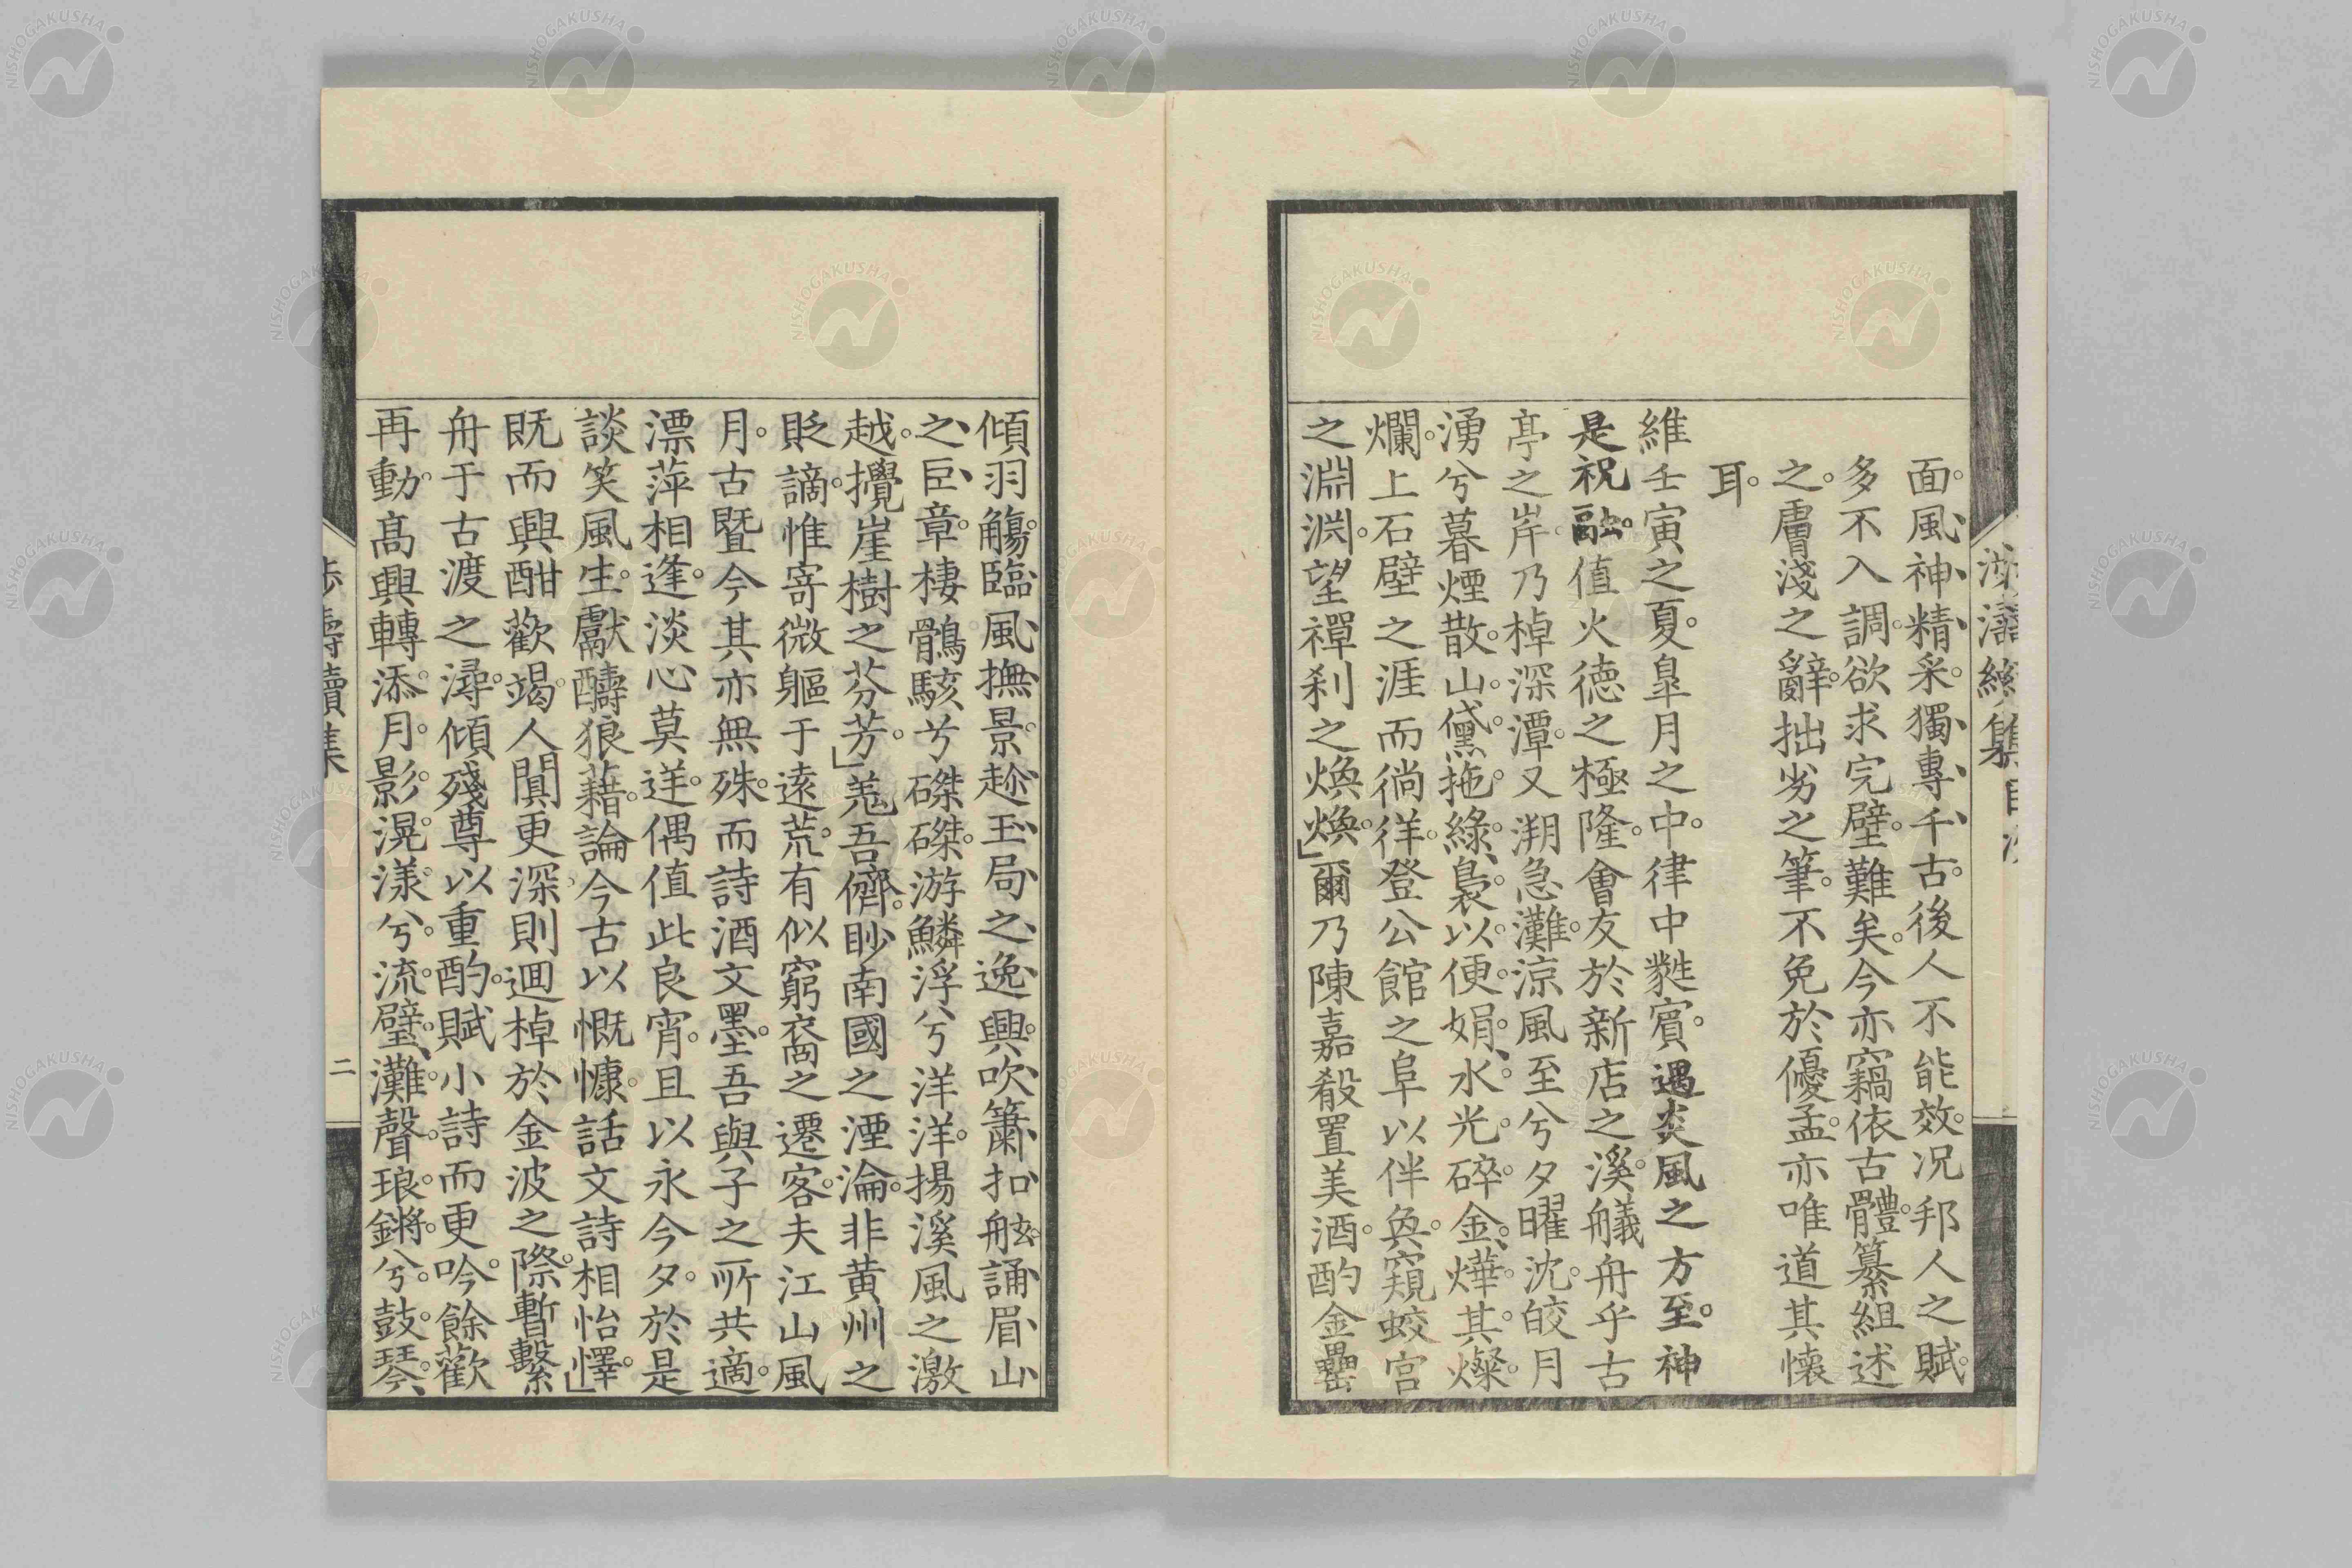 面。風神精采。獨專千古。後人不能效。况邦人之賦。
多不入調。欲求完璧。難矣。今亦竊依古體。纂組述
之。膚淺之辭。拙劣之筆。不免於優孟。亦唯道其懷
耳。
維壬寅之夏。皐月之中。律中蕤賓。遇炎風之方至。神
是祝融。值火德之極隆。會友於新店之溪。艤舟乎古
亭之岸。乃棹深潭。又溯急灘。涼風至兮夕曜沈。皎月
湧兮暮煙散。山黛拖綠。裊以便娟、水光碎金、燁其燦
爛。上石壁之涯而徜徉。登公館之阜以伴奐。窺蛟宮
之淵淵。望禪刹之煥煥。」爾乃陳嘉殽置美酒。酌金罍
傾羽觴。臨風撫景。趁玉局之逸興。吹簫扣舷。誦眉山
之臣章。棲鶻駭兮磔磔。游鱗浮兮洋洋。揚溪風之激
越。攪崖樹之芬芳。」羗吾儕。眇南國之湮淪。非黄州之
貶謫。惟寄微軀于遠荒。有似窮裔之遷客。夫江山風
月。古暨今其亦無殊。而詩酒文墨。吾與子之所共適。
漂萍相逢。淡心莫逆。偶值此良宵。且以永今夕。於是
談笑風生。獻醻狼藉。論今古以慨慷。話文詩相怡懌。」
既而興酣歡竭。人闃更深。則迴棹於金波之際。暫繫
舟于古渡之潯。傾殘尊以重酌。賦小詩而更吟。餘歡
再動。高興轉添。月影滉漾兮。流璧、灘聲琅鏘兮。鼓琴、
二